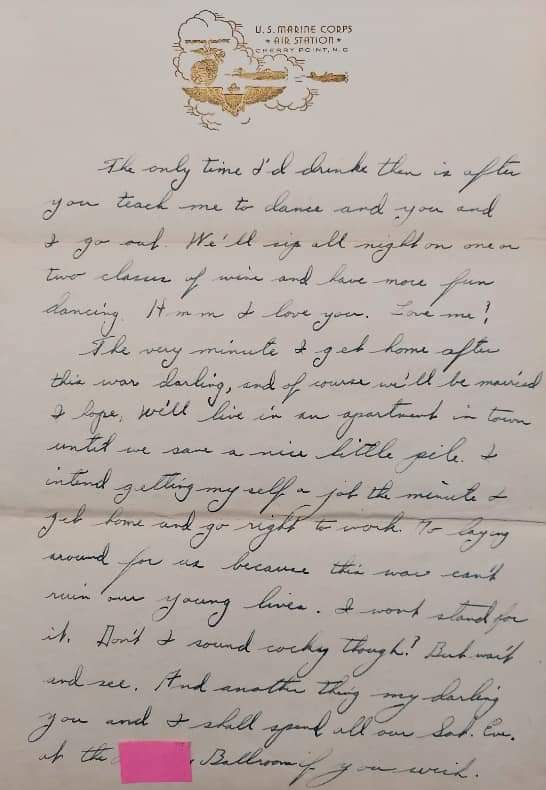 U.S. MARINE CORPS
AIR STATION
CHERRY POINT, N.C.
The only time I'd drinke then is after
you teach me to dance and you and
I go out. We'll sip all night on one or
two classes of wine and have more fun
dancing. Hmm I love you. Love me?
The very minute I get home after
this war darling, and of course we'll be married
I hope, we'll live in an apartment in town
until we save a nice little pile. I
intend getting my self a job the minute I
get home and go right to work. No laying
around for us because this war can't
ruin our young lives. I wont stand for
it. Don't I sound cocky though? But wait
and see. And another thing my darling
you and I shall spend all our Sat. Eve.
at the Ballroom if you wish.